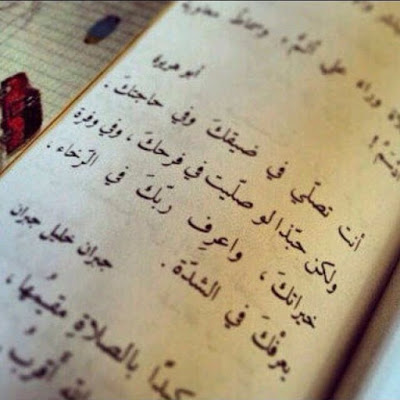 وراء على أتم، وبساط معاوية
أبو هريرة
أنت تصلّي في ضيقكَ وفي حاجتكَ.
ولكن حبّذا لو صلّيت في فرحكَ، وفي وفرة
خيراتكَ، واعرِف ربّكَ في الرّخاء،
يعرفْكَ في الشدّة.
جبران خليل جبران
بالصلاةِ مقيمُها،
أقربُ